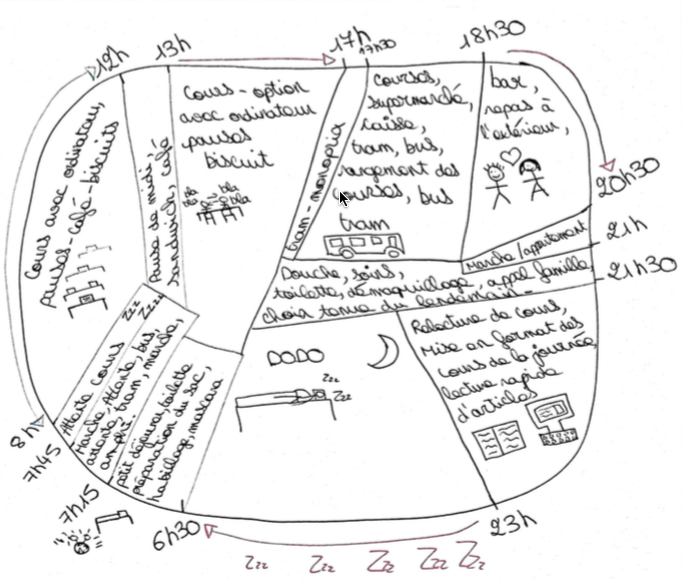 12h
13h
17h
17h30
18h30
20h30
21h
21h30
23h
6h30
7h15
7h45
8h
Cours avec ordinateur,
pauses-café-biscuits
Pause de midi,
sandwich, café
Cours-option
avec ordinateur
pauses
biscuit
bla
bla
bla
tram-monoprix
courses,
supermarché,
caisse,
tram, bus,
rangement des
courses, bus
tram
bar,
repas à
l'extérieur,
Marche/appartement
Douche, soins,
toilette, démaquillage, appel famille,
choix tenue du lendemain-
Relecture de cours,
Mise en format des
cours de la journée,
lecture rapide
d'articles
DODO
Zzz
Zzz
petit déjeuner, toilette
préparation du sac,
habillage, mascara
Marche, Attente, bus,
attente, tram, marche,
Attente cours
zzz
zzzz
Zzz Zzz Zzz Zzz Zzz